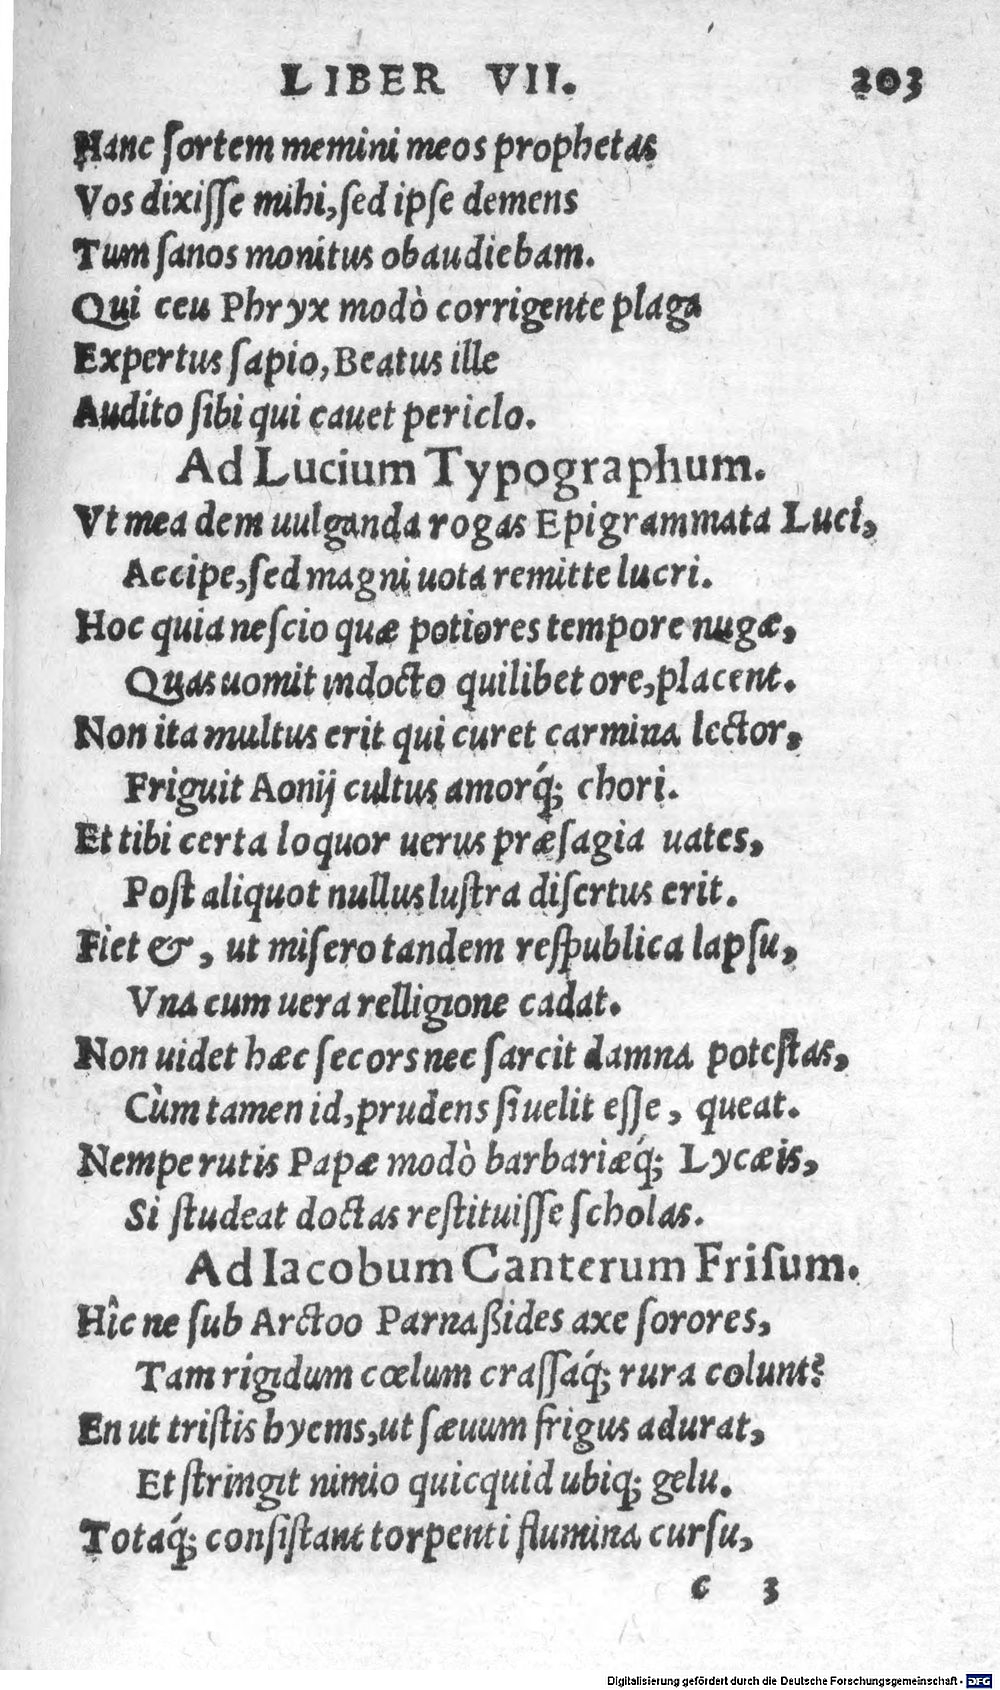 LIBER VII. 203
Hanc ſortem memini meos prophetas
Vos dixiſſe mihi, ſed ipſe demens
Tum ſanos monitus obaudiebam.
Qui ceu Phryx modò corrigente plaga
Expertus ſapio, Beatus ille
Audito ſibi qui cauet periclo.
Ad Lucium Typographum.
Vt mea dem uulganda rogas Epigrammata Luci,
Accipe, ſed magni uota remitte lucri.
Hoc quia neſcio quæ potiores tempore nugæ,
Quas uomit indocto quilibet ore, placent.
Non ita multus erit qui curet carmina lector,
Friguit Aonij cultus amorq́; chori.
Et tibi certa loquor uerus præſagia uates,
Poſt aliquot nullus luſtra diſertus erit.
Fiet &, ut miſero tandem reſpublica lapſu,
Vna cum uera relligione cadat.
Non uidet hæc ſecors nec ſarcit damna poteſtas,
Cùm tamen id, prudens ſi uelit eſſe, queat.
Nempe rutis Papæ modò barbariæq́; Lycæis,
Si ſtudeat doctas reſtituiſſe ſcholas.
Ad Iacobum Canterum Friſum.
Hîc ne ſub Arctoo Parnaßides axe ſorores,
Tam rigidum cœlum craſſaq́; rura colunt?
En ut triſtis hyems, ut ſæuum frigus adurat,
Et ſtringit nimio quicquid ubiq; gelu.
Totaq́; conſiſtant torpenti flumina curſu,
c 3
Digitalisierung gefördert durch die Deutsche Forschungsgemeinschaft - DFG